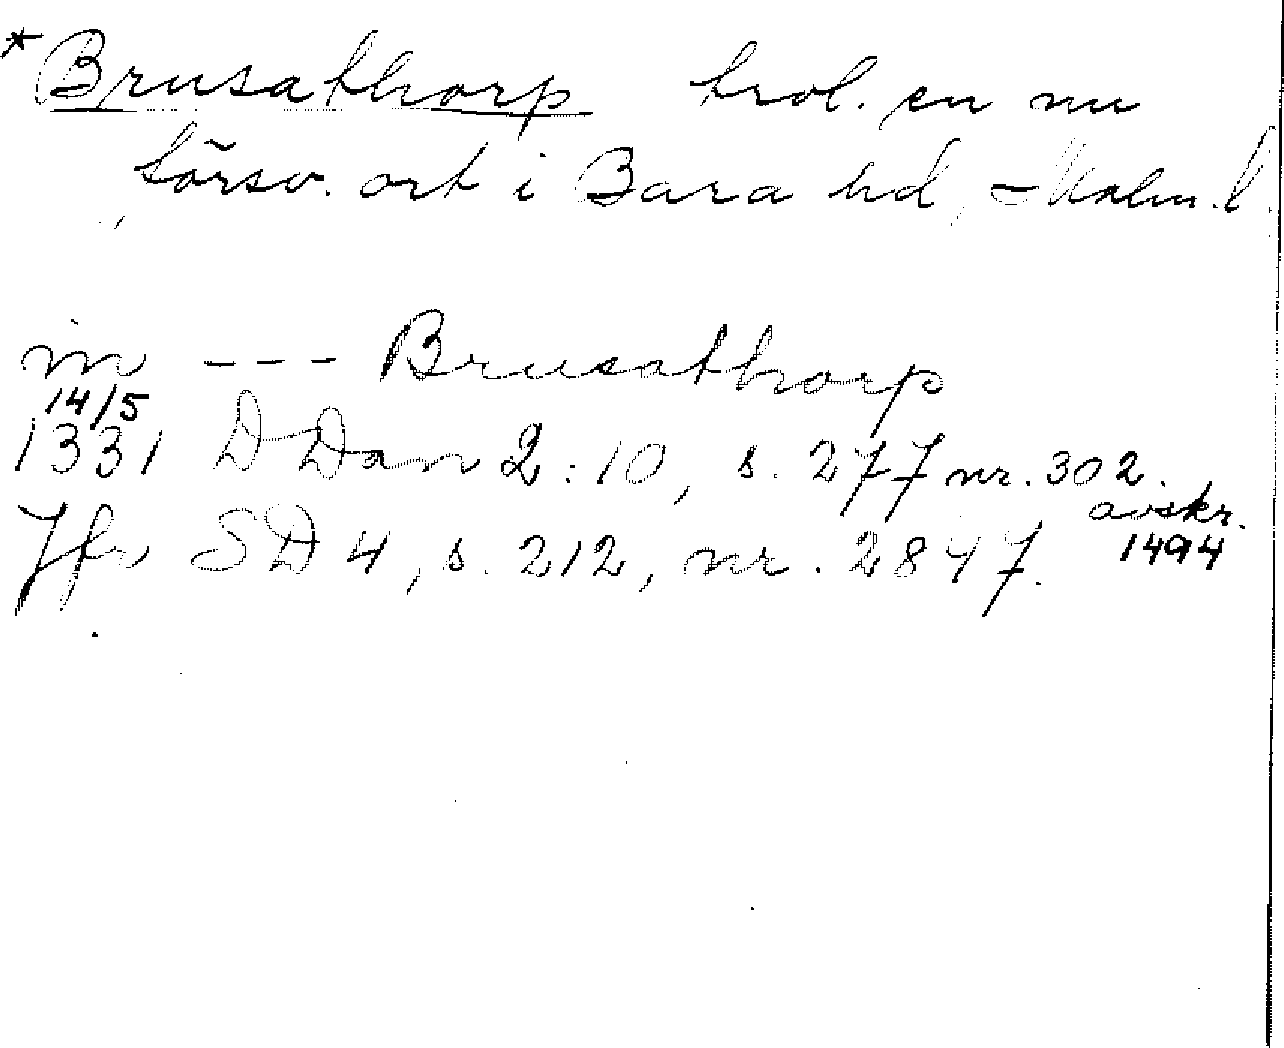 *Brusathorp trol. en nu
försv. ort i Bara hd, Malm. l.
in --- Brusathorp
14/5
1331 DDan 2:10, s. 277 nr. 302.
avskr.
Jfr SD 4, s. 212, nr. 2847. 1494